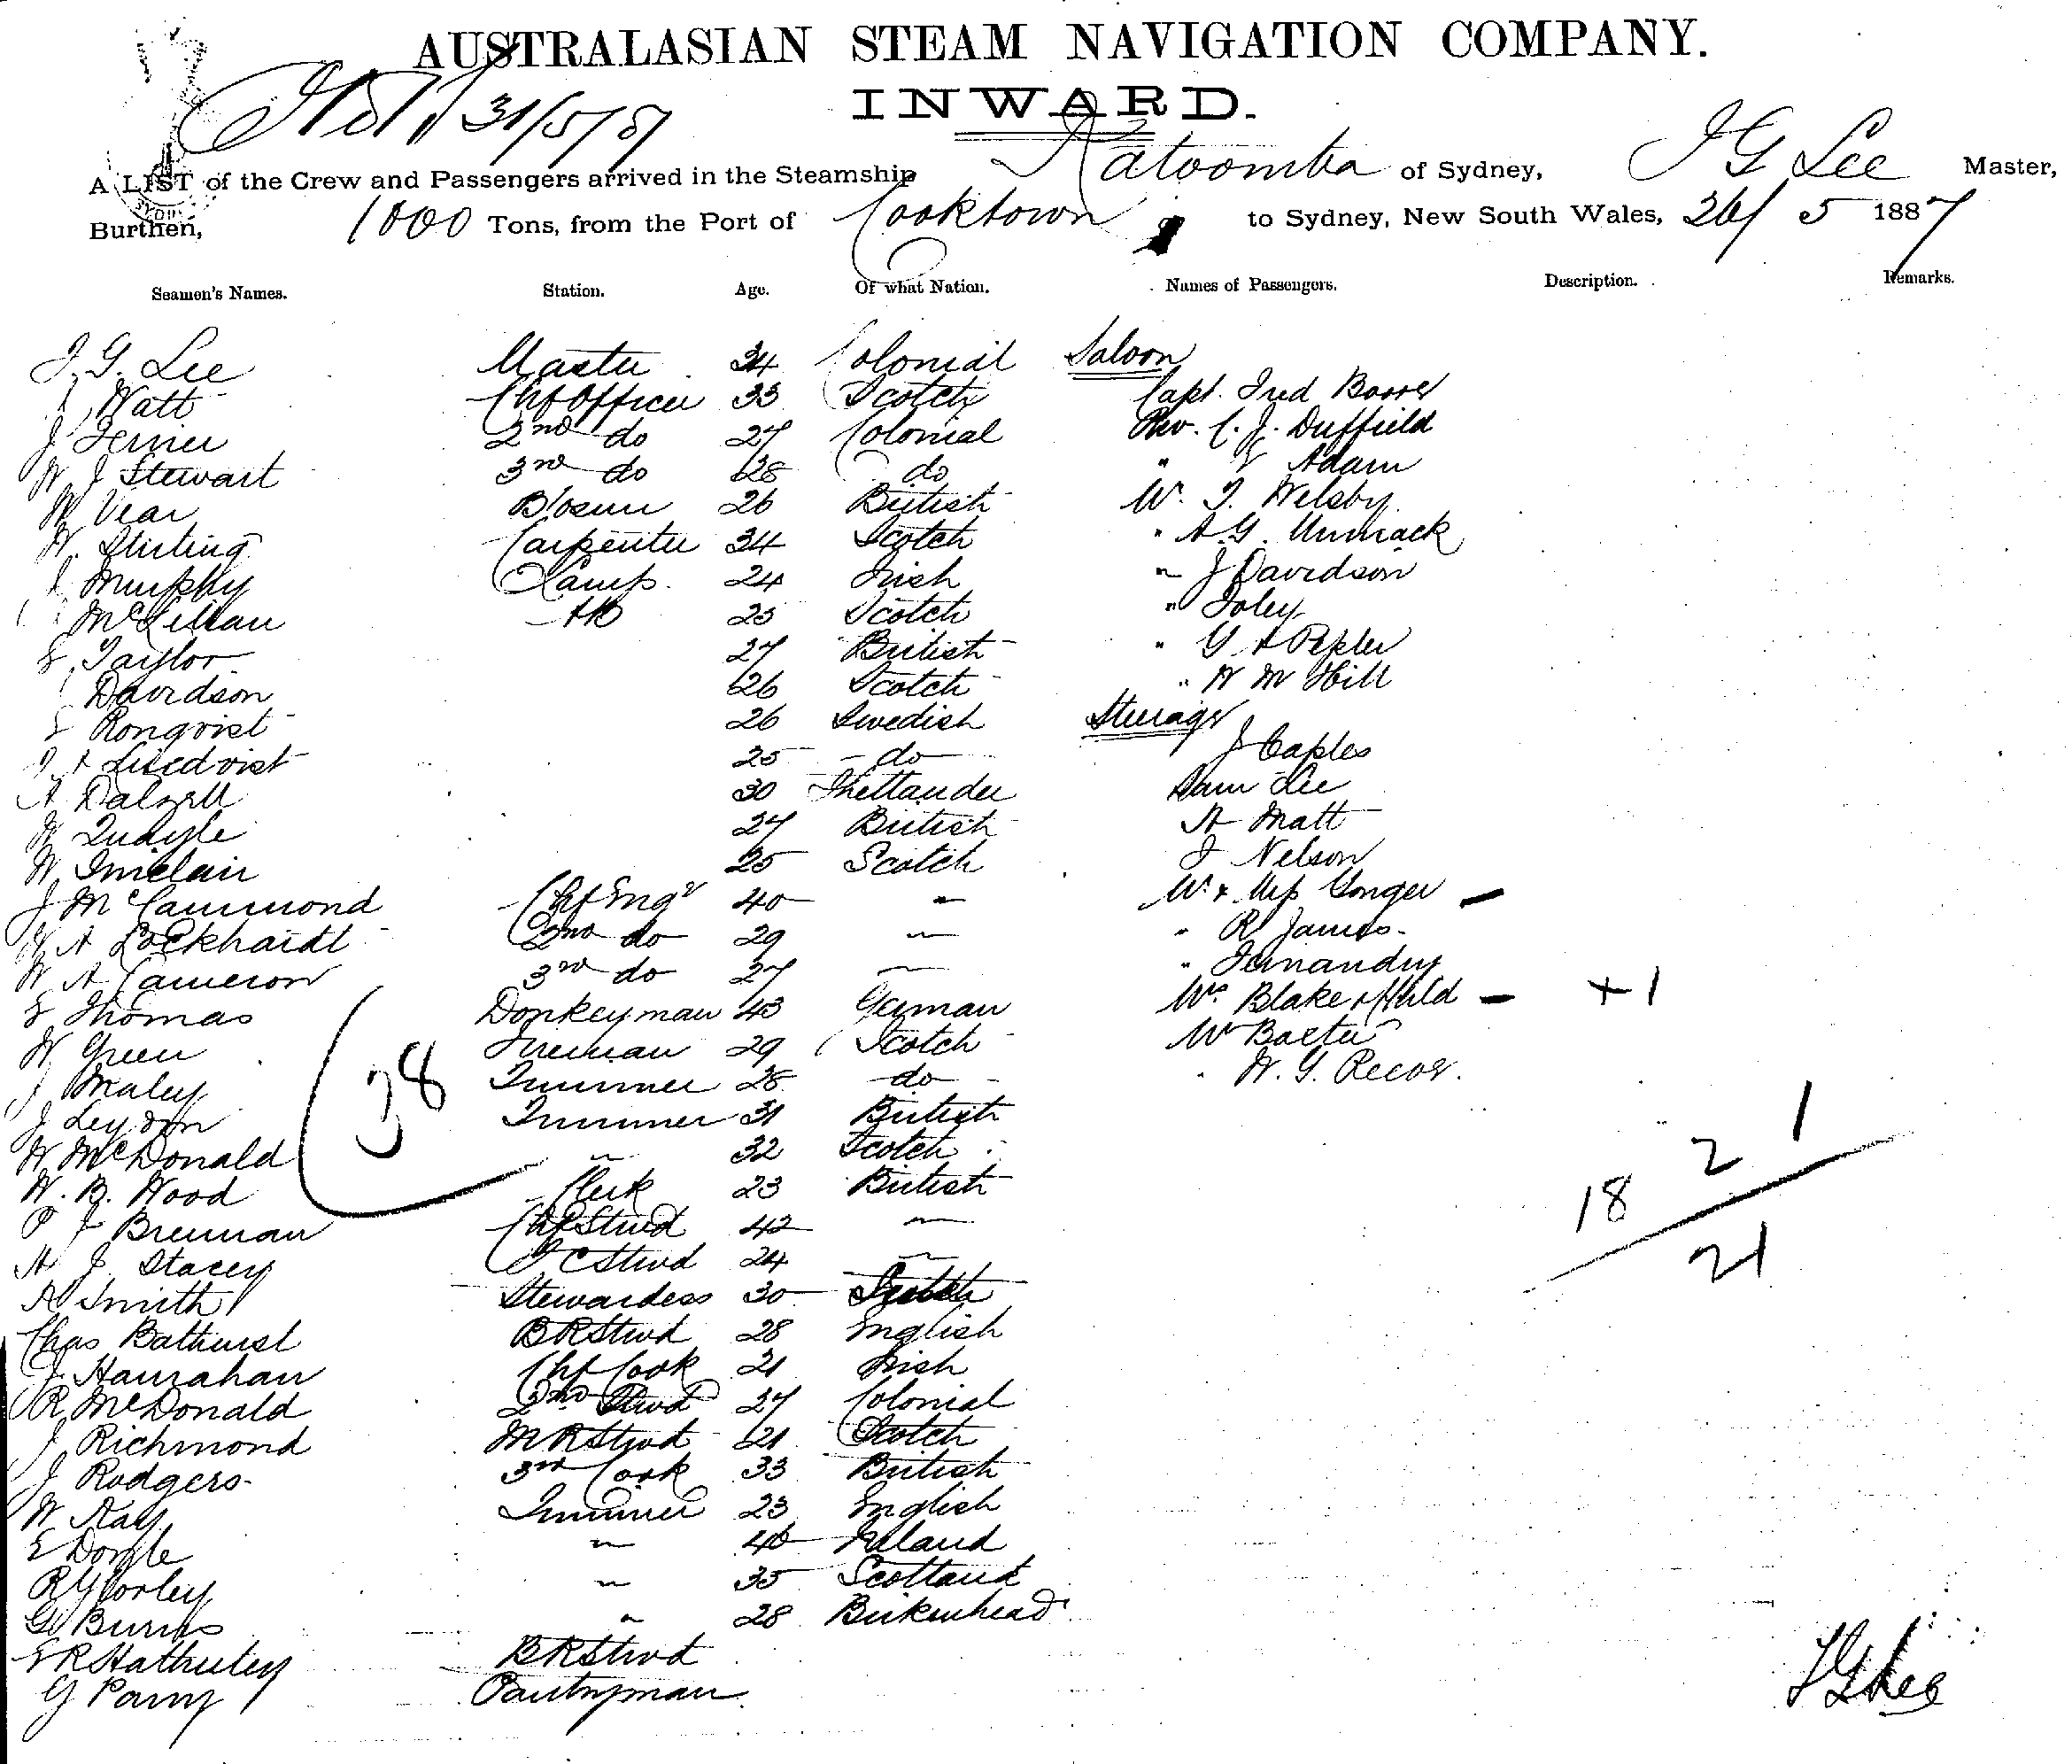 AUSTRALASIAN STEAM NAVIGATION COMPANY.
31/5/87
INWARD.
A LIST of the Crew and Passengers arrived in the Steamship Katoomba of Sydney, J G Lee Master,
Burthen, 1000 Tons, from the Port of Cooktown to Sydney, New South Wales, 26/5 1887
Seamen's Names. Station. Age. Of what Nation. Names of Passengers. Description. Remarks.
J. G. Lee Master 34 Colonial Saloon
Watt Chf Officer 33 Scotch Capt. Fred
J Ferrier 2nd do 27 Colonial Rev. C. J. Duffield
W J Stewart 3rd do 28 do " Adam
W Vear Bosun 26 British Mr. T. Welsby
W. Stirling Carpenter 34 Scotch " A. G. Unmack
Murphy Lamps. 24 Irish " J Davidson
McLellan AB 25 Scotch " Foley
Taylor 27 British " G A Pepler
Davidson 26 Scotch " W M Hill
Ronqvist 26 Swedish Steerage
25 do J Caples
A Dalzell 30 Shetlander Sam Lee
W 27 British A Matt
W Sinclair 25 Scotch J Nelson
J McCammond Chf Engr 40 – Mr & Mrs Yonger –
A Lockhardt 2nd do 29 – " R James
W A Cameron 3rd do 27 – " Fernandez
Thomas Donkeyman 43 German Mrs Blake & Child – +1
W Green Fireman 29 Scotch Mr Baxter
J Maley Trimmer 28 do " W. G.
J Leydon Trimmer 31 British
W McDonald " 32 Scotch
38
W. B. Wood Clerk 23 British
P J Brennan Chf Stwd 42 –
A J Stacey F C Stwd 24 –
A Smith Stewardess 30
Chas Bathurst B R Stwd 28 English
J Hanrahan Chf Cook 21 Irish
R McDonald 2nd Stwd 27 Colonial
J Richmond M R Stwd 21 Scotch
J Rodgers 3rd Cook 33 British
W Kay Trimmer 23 English
E Doyle " 40 Ireland
R Yorley " 35 Scotland
G Burns " 28 Birkenhead
E R Hatherley B R Stwd
G Parry Pantryman
1
2
18
21
J G Lee